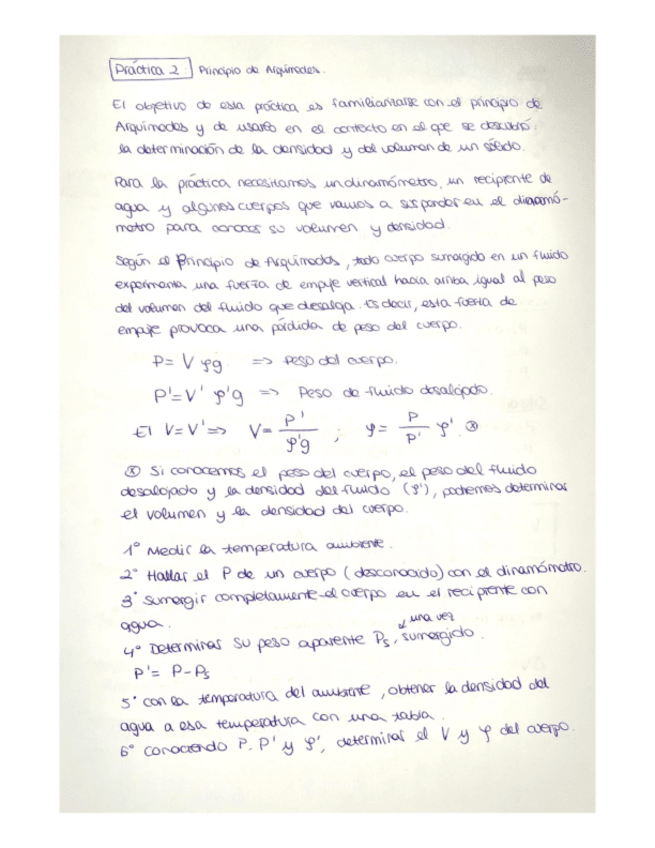 Práctica 2. Principio de Arquímedes.
El objetivo de esta práctica es familiarizarse con el principio de
Arquímedes y de usarlo en el contexto en el que se descubrió:
la determinación de la densidad y del volumen de un sólido.
Para la práctica necesitamos un dinamómetro, un recipiente de
agua y algunos cuerpos que vamos a suspender en el dinamó-
metro para conocer su volumen y densidad.
Según el Principio de Arquímedes, todo cuerpo sumergido en un fluido
experimenta una fuerza de empuje vertical hacia arriba igual al peso
del volumen del fluido que desaloja. Es decir, esta fuerza de
empuje provoca una pérdida de peso del cuerpo.
P = V φg => Peso del cuerpo.
P' = V' φ'g => Peso de fluido desalojado.
El V = V' => V = P' / φ'g ; φ = P / P' φ'. ⊛
⊛ Si conocemos el peso del cuerpo, el peso del fluido
desalojado y la densidad del fluido (φ'), podemos determinar
el volumen y la densidad del cuerpo.
1º Medir la temperatura ambiente.
2º Hallar el P de un cuerpo (desconocido) con el dinamómetro.
3º Sumergir completamente el cuerpo en el recipiente con
agua.
4º Determinar su peso aparente Ps, una vez sumergido.
P' = P - Ps
5º Con la temperatura del ambiente, obtener la densidad del
agua a esa temperatura con una tabla.
6º Conociendo P, P' y φ', determinar el V y φ del cuerpo.